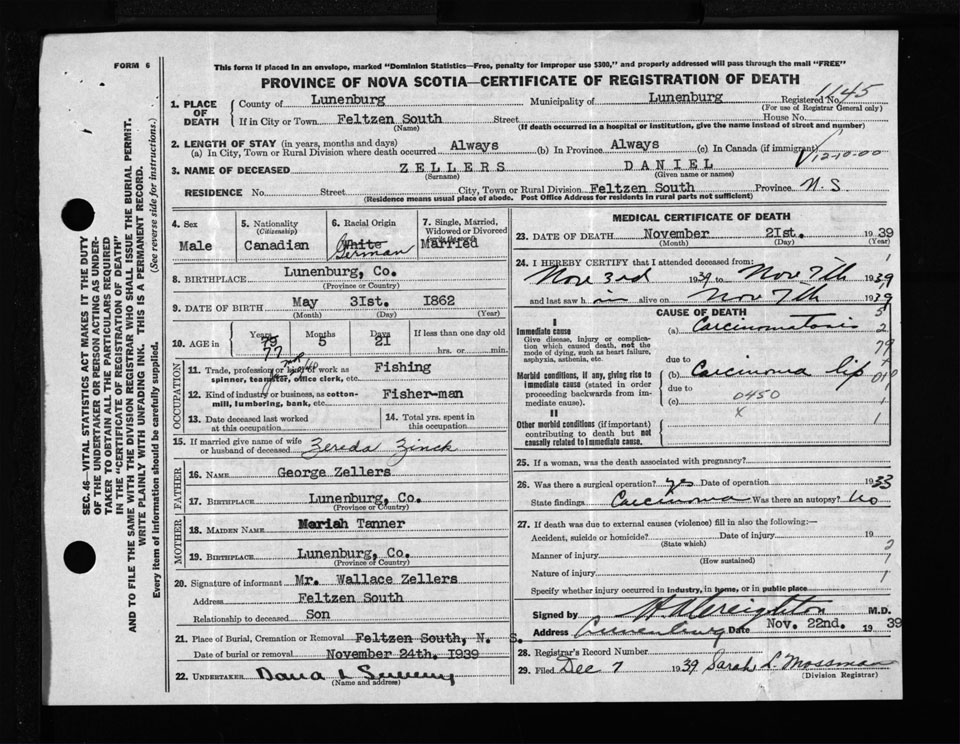 FORM 6
This form if placed in an envelope, marked "Dominion Statistics—Free, penalty for improper use $300," and properly addressed will pass through the mail "FREE"
PROVINCE OF NOVA SCOTIA—CERTIFICATE OF REGISTRATION OF DEATH
1145
1. PLACE OF DEATH
County of Lunenburg Municipality of Lunenburg Registered No.
(For use of Registrar General only)
If in City or Town Feltzen South Street House No.
(Name) (If death occurred in a hospital or institution, give the name instead of street and number)
2. LENGTH OF STAY (in years, months and days)
(a) In City, Town or Rural Division where death occurred Always (b) In Province Always (c) In Canada (if immigrant)
12-10-00
3. NAME OF DECEASED ZELLERS DANIEL
(Surname) (Given name or names)
RESIDENCE No. Street City, Town or Rural Division Feltzen South Province N.S.
(Residence means usual place of abode. Post Office Address for residents in rural parts not sufficient)
SEC. 46—VITAL STATISTICS ACT MAKES IT THE DUTY
OF THE UNDERTAKER OR PERSON ACTING AS UNDER-
TAKER TO OBTAIN ALL THE PARTICULARS REQUIRED
IN THE "CERTIFICATE OF REGISTRATION OF DEATH"
AND TO FILE THE SAME WITH THE DIVISION REGISTRAR WHO SHALL ISSUE THE BURIAL PERMIT.
WRITE PLAINLY WITH UNFADING INK. THIS IS A PERMANENT RECORD.
Every item of information should be carefully supplied. (See reverse side for instructions.)
4. Sex
Male
5. Nationality
(Citizenship)
Canadian
6. Racial Origin
White
German
7. Single, Married,
Widowed or Divorced
Married
8. BIRTHPLACE Lunenburg, Co.
(Province or Country)
9. DATE OF BIRTH May 3Ist. I862
(Month) (Day) (Year)
10. AGE in
Years Months Days If less than one day old
79 5 21 hrs. or min.
77
OCCUPATION
11. Trade, profession or kind of work as Fishing
spinner, teamster, office clerk, etc.
12. Kind of industry or business, as cotton-
mill, lumbering, bank, etc. Fisher-man
13. Date deceased last worked
at this occupation
14. Total yrs. spent in
this occupation
15. If married give name of wife
or husband of deceased Zereda Zinck
FATHER
16. NAME George Zellers
17. BIRTHPLACE Lunenburg, Co.
(Province or Country)
MOTHER
18. MAIDEN NAME Mariah Tanner
19. BIRTHPLACE Lunenburg, Co.
(Province or Country)
20. Signature of informant Mr. Wallace Zellers
Address Feltzen South
Relationship to deceased Son
21. Place of Burial, Cremation or Removal Feltzen South, N. S.
Date of burial or removal November 24th. I939
22. UNDERTAKER Dana L
(Name and address)
MEDICAL CERTIFICATE OF DEATH
23. DATE OF DEATH November 2Ist. 1939
(Month) (Day) (Year)
24. I HEREBY CERTIFY that I attended deceased from:
Nov 3rd 1939 to Nov 7th 1939
and last saw him alive on Nov 7th 1939
CAUSE OF DEATH
I
Immediate cause (a) Carcinomatosis
Give disease, injury or complica-
tion which caused death, not the
mode of dying, such as heart failure,
asphyxia, asthenia, etc. due to
Morbid conditions, if any, giving rise to
immediate cause (stated in order
proceeding backwards from im-
mediate cause).
(b) Carcinoma lip
due to
0450
(c)
II
x
Other morbid conditions (if important)
contributing to death but not
causally related to immediate cause.
25. If a woman, was the death associated with pregnancy?
26. Was there a surgical operation? yes Date of operation 1933
State findings Carcinoma Was there an autopsy? No
27. If death was due to external causes (violence) fill in also the following:—
Accident, suicide or homicide? Date of injury 19
(State which)
Manner of injury
(How sustained)
Nature of injury
Specify whether injury occurred in industry, in home, or in public place
Signed by Creighton M.D.
Address Lunenburg Date Nov. 22nd. 1939
28. Registrar's Record Number
29. Filed Dec 7 1939 Sarah L. Mossman
(Division Registrar)